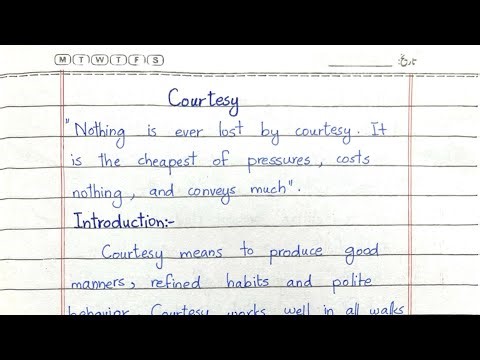 M T W T F S
تاریخ
Courtesy
"Nothing is ever lost by courtesy. It
is the cheapest of pressures, costs
nothing, and conveys much".
Introduction:-
Courtesy means to produce good
manners, refined habits and polite
behavior. Courtesy works well in all walks